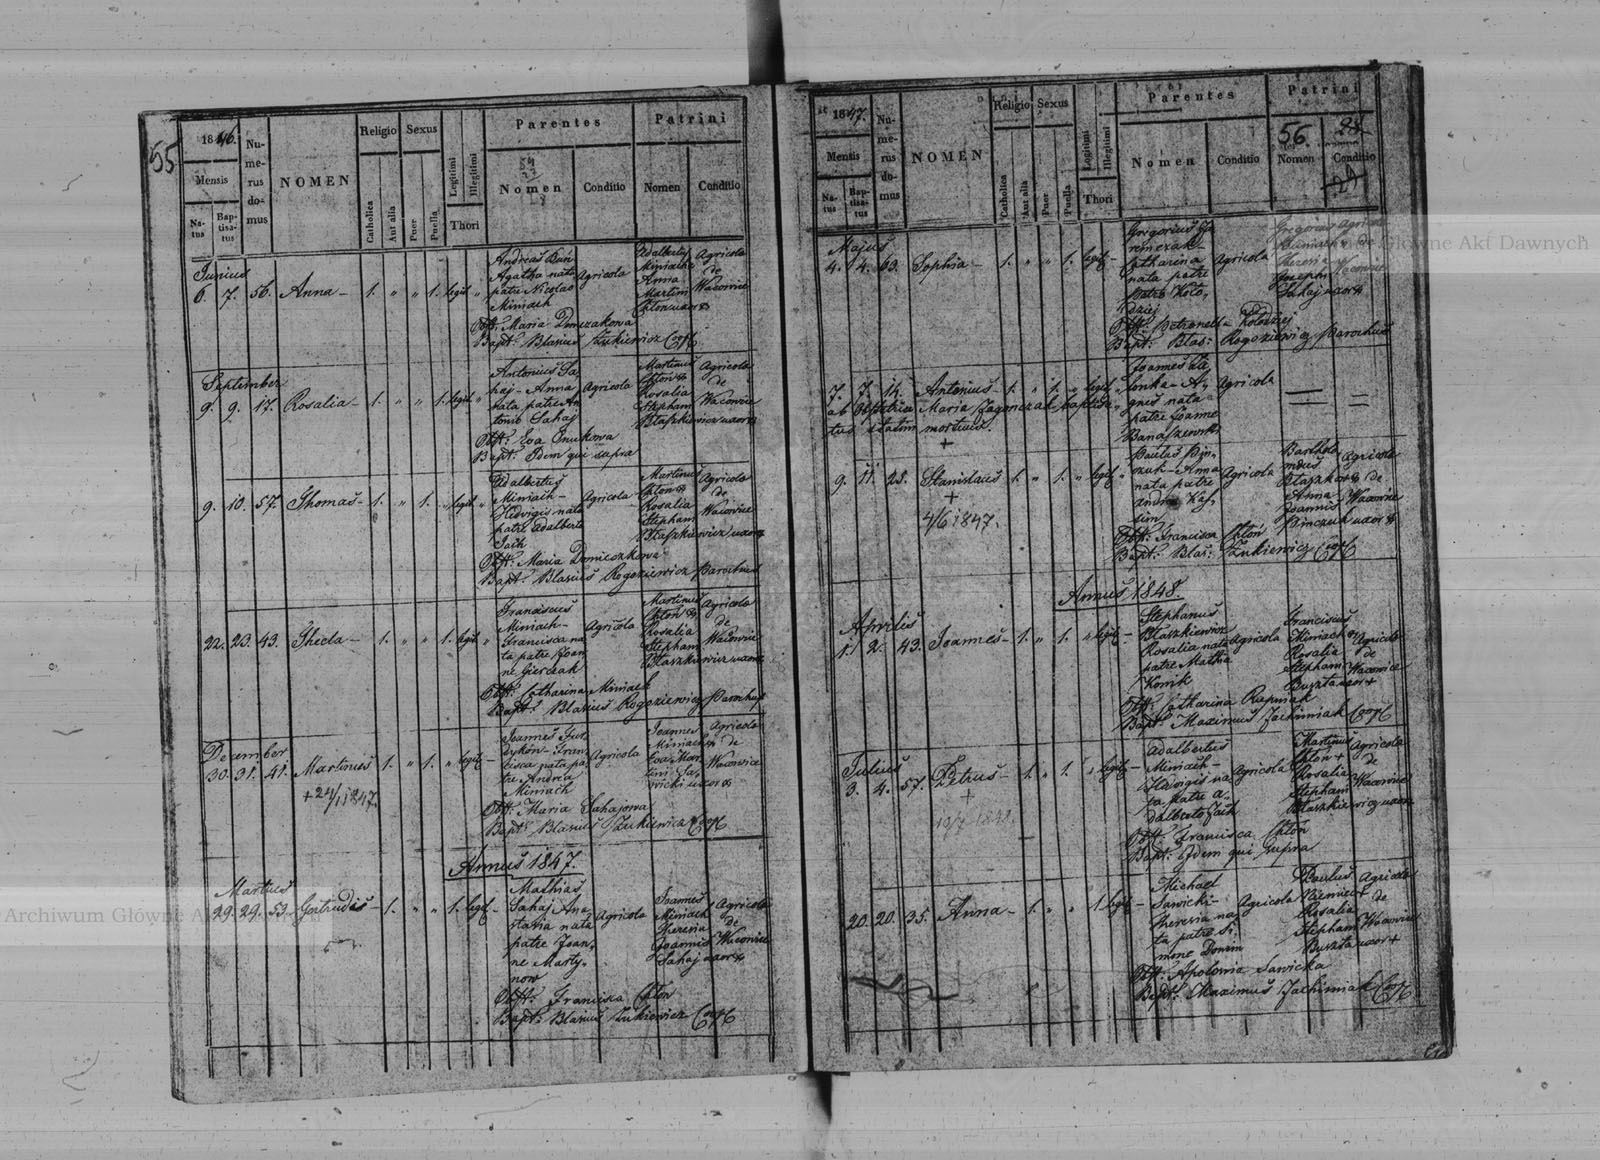 55
1846.
Numerus domus
NOMEN
Religio
Sexus
Legitimi
Illegitimi
Parentes
Patrini
Mensis
Natus
Baptisatus
Catholica
Aut alia
Puer
Puella
Thori
Nomen
Conditio
Nomen
Conditio
Junius
6. 7. 56. Anna - 1. " " 1. legit "
Andreas
Agatha nata
patre Nicolao
Miniach
Agricola
Adalbertus
Miniach &
Anna
Martini
Chłoń uxor
Agricola
de
Wacowice
Obst: Maria Domczakowa
Bapt: Blasius Żukiewicz Coop
September
9. 9. 17. Rosalia - 1. " " 1. legit "
Antonius Sa
haj - Anna
nata patre An
tonio Sahaj
Agricola
Martinus
Chłoń &
Rosalia
Stephani
Błaszkiewicz uxor
Agricola
de
Wacowice
Obst: Eva
Bapt: Idem qui supra
9. 10. 57. Thomas - 1. " 1. " legit "
Adalbertus
Miniach -
Hedvigis nata
patre Adalberto
Jach
Agricola
Martinus
Chłoń &
Rosalia
Stephani
Błaszkiewicz uxor
Agricola
de
Wacowice
Obst: Maria Domiczkowa
Bapt: Blasius Rogoziewicz Parochus
22. 23. 43. Thecla - 1. " " 1. legit "
Franciscus
Miniach -
Francisca na
ta patre Joan
ne Gierczak
Agricola
Martinus
Chłoń &
Rosalia
Stephani
Błaszkiewicz uxor
Agricola
de
Wacowice
Obst: Catharina Miniach
Bapt: Blasius Rogoziewicz Parochus
December
30. 31. 41. Martinus 1. " 1. " legit -
+ 24/1 1847.
Joannes Fur
dykon - Fran
cisca nata pa
tre Andrea
Miniach
Agricola
Joannes
Miniach &
Eva Mar
tini Sa
wicki uxor
Agricola
de
Wacowice
Obst: Maria Sahajowa
Bapt: Blasius Żukiewicz Coop
Annus 1847.
Martius
29. 29. 53. Gertrudis - 1. " " 1. legit -
Mathias
Sahaj Ana
stasia nata
patre Joan
ne Marty
now
Agricola
Joannes
Miniach
Theresia
Joannis
Sahaj uxor
Agricola
de
Wacowice
Obst: Francisca Chłoń
Bapt: Blasius Żukiewicz Coop
Archiwum Główne A
1847.
Numerus domus
NOMEN
Religio
Sexus
Legitimi
Illegitimi
Parentes
Patrini
Mensis
Natus
Baptisatus
Catholica
Aut alia
Puer
Puella
Thori
Nomen
Conditio
56.
Nomen
Conditio
29
Główne Akt Dawnych
Majus
4. 4. 63. Sophia - 1. " " 1. legit -
Gregorius Ja
remczak -
Catharina
nata patre
Petro Koło
dziej
Agricola
Gregorius
Miniach &
Theresia
Josephi
Sahaj uxor
Agricola
de
Wacowice
Obst: Petronella Kołodziej
Bapt: Blas: Rogoziewicz Parochus
7. 7. 14. Antonius 1. " 1. " legit "
ab Obstetrice Maria Jagmczak baptisa
tus statim mortuus.
+
Joannes
A
gnes nata
patre Joanne
Banaszewski
Agricola
9. 11. 25. Stanislaus 1. " 1. " legit -
+
4/6 1847.
Paulus Pin
czak - Anna
nata patre
Andrea
Agricola
Bartholo
meus
Błaszko &
Anna
Joannis
Pinczak uxor
Agricola
de
Wacowice
Obst: Francisca Chłoń
Bapt: Blas: Żukiewicz Coop
Annus 1848.
Aprilis
1. 2. 43. Joannes - 1. " 1. " legit -
Stephanus
Błaszkiewicz
Rosalia nata
patre Mathia
Konik
Agricola
Franciscus
Miniach &
Rosalia
Stephani
Buszta uxor +
Agricola
de
Wacowice
Obst: Catharina Rupniak
Bapt: Maximus Jachimiak Coop
Julius
3. 4. 57. Petrus - 1. " 1. " legit -
+
19/7 1848
Adalbertus
Miniach -
Hedvigis na
ta patre A
dalberto Jach
Agricola
Martinus
Chłoń +
Rosalia
Stephani
Błaszkiewicz uxor
Agricola
de
Wacowice
Obst: Francisca Chłoń
Bapt: Idem qui supra
20. 20. 35. Anna - 1. " " 1 legit -
Michael
Sawicki -
Theresia na
ta patre Si
mone Domin
Agricola
Paulus
Niemiec +
Rosalia
Stephani
Buszta uxor +
Agricola
de
Wacowice
Obst: Apolonia Sawicka
Bapt: Maximus Jachimiak Coop